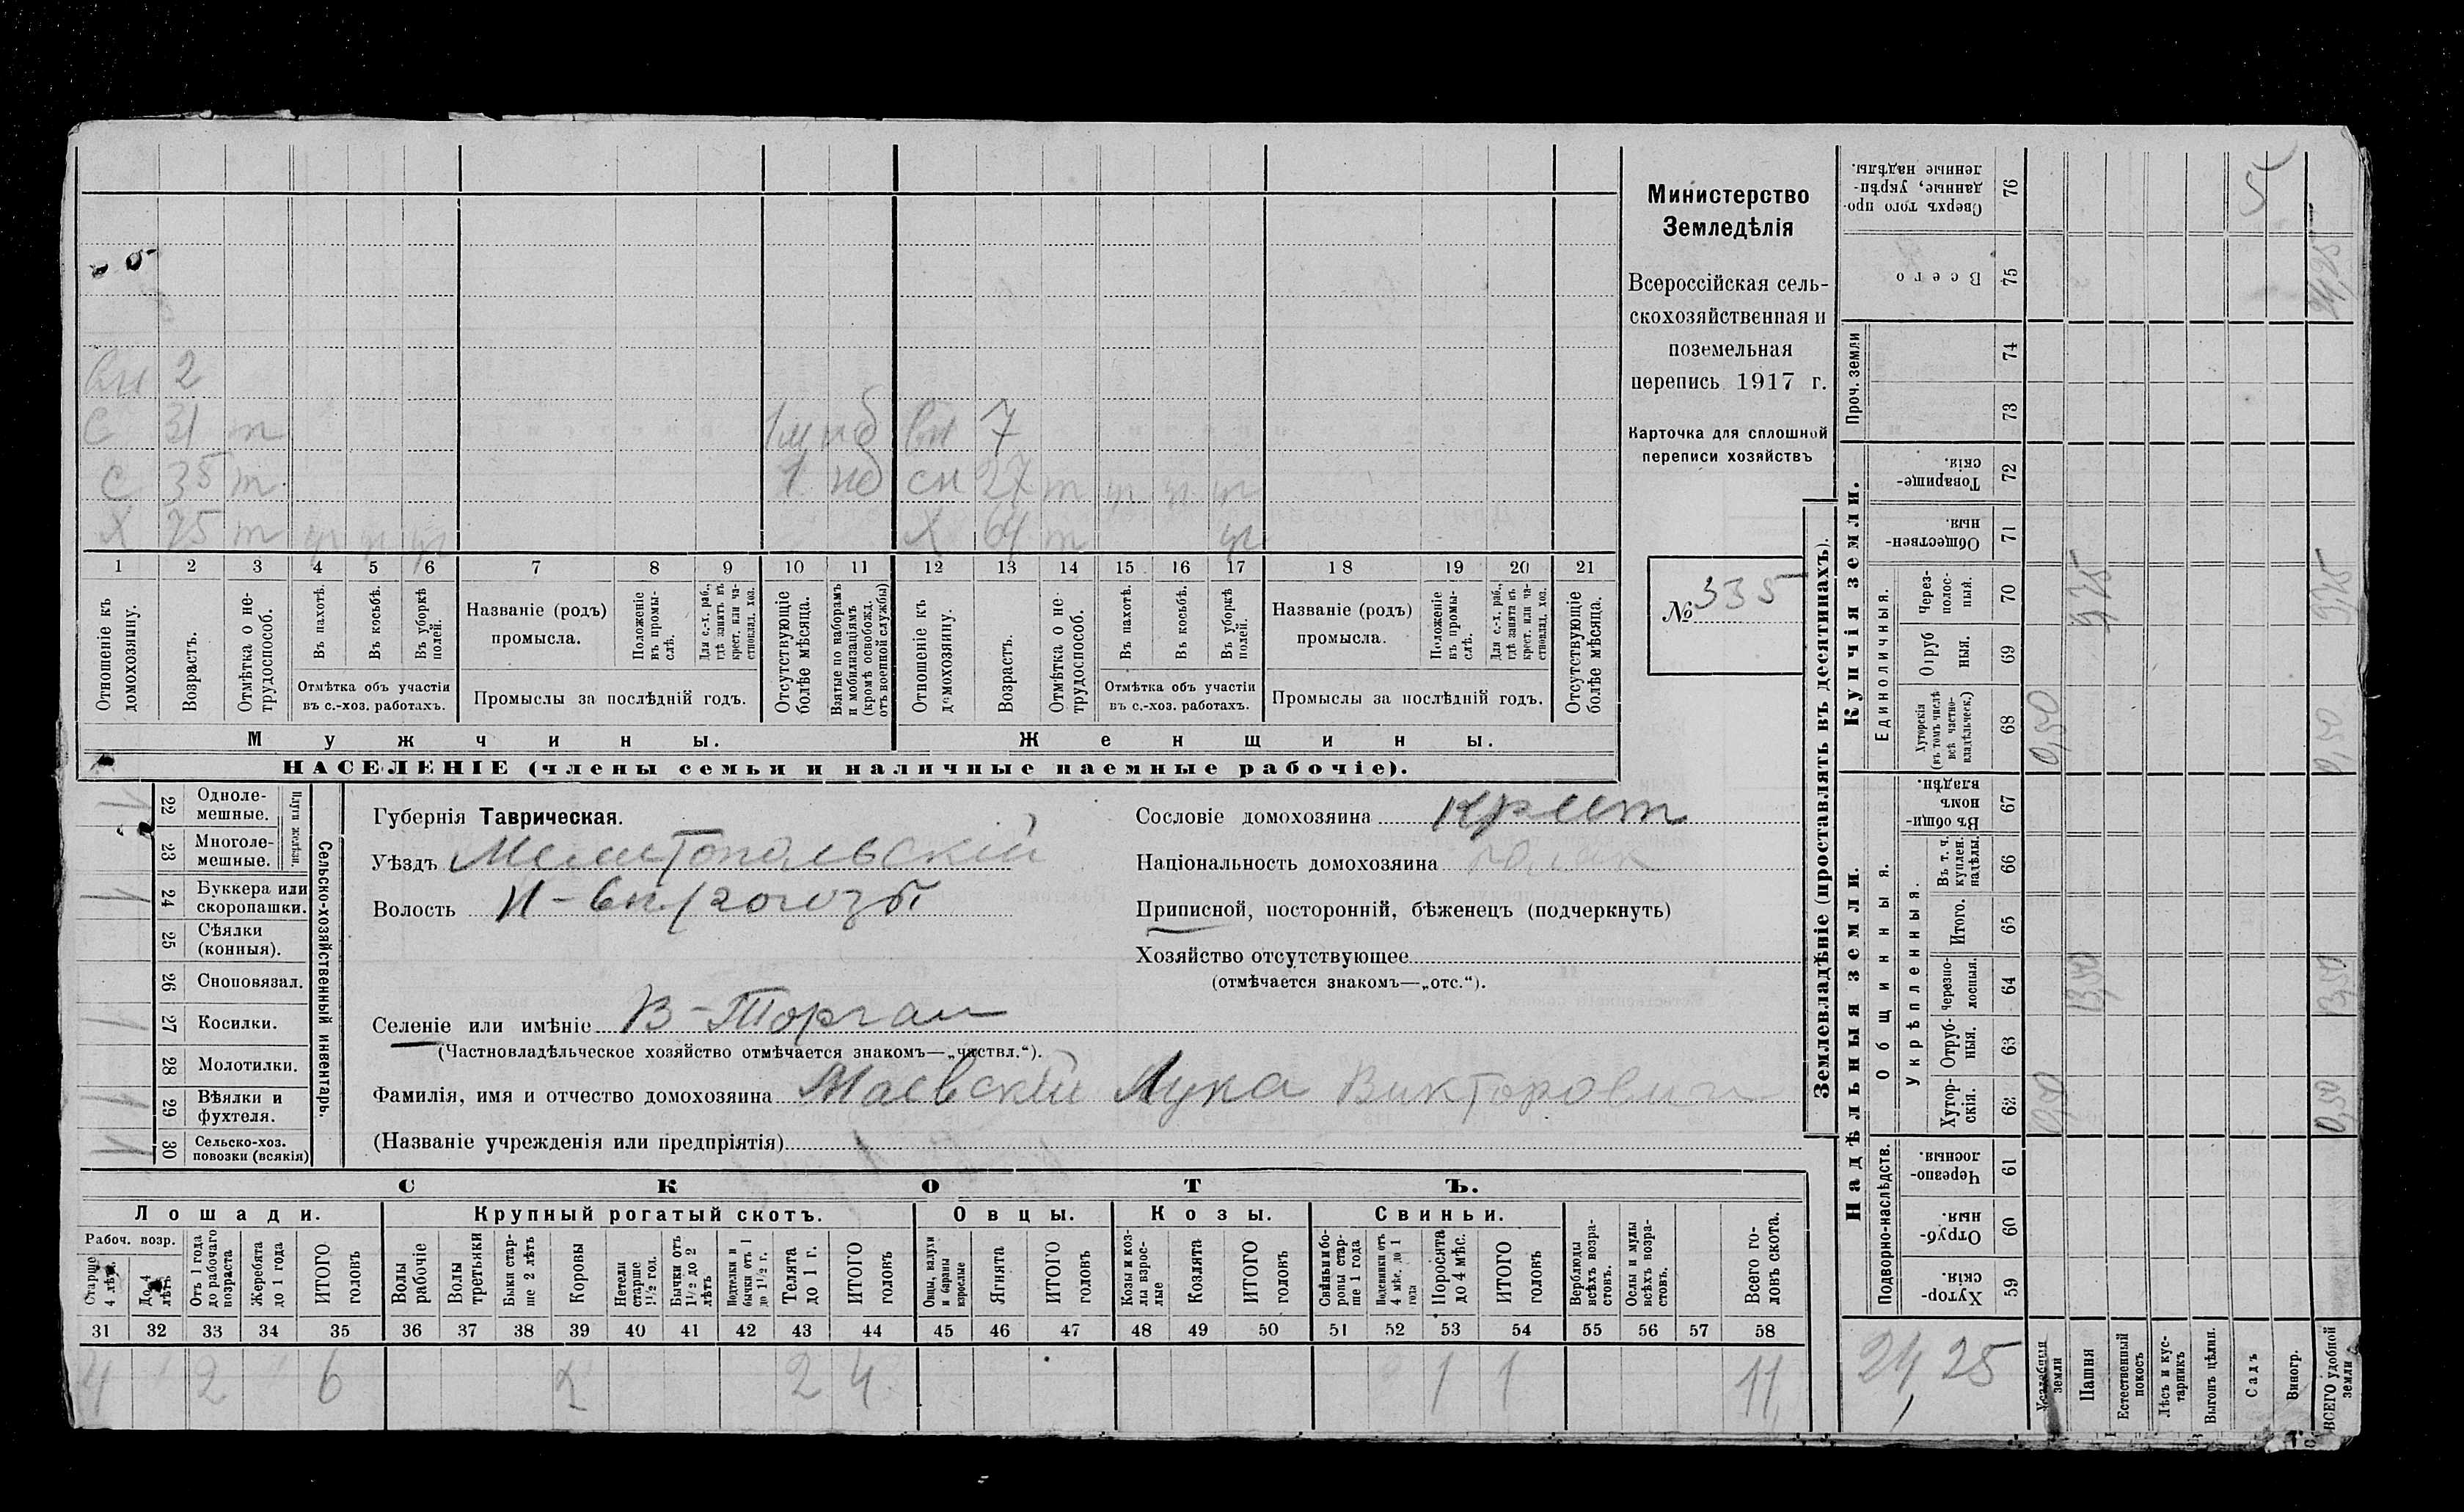 Министерство
Земледѣлія
Всероссійская сель-
скохозяйственная и
поземельная
перепись 1917 г.
Карточка для сплошной
переписи хозяйствъ
№ 335
вн 2
С 31 т 1 м нб вн 7
С 35 т 1 нб сн 27 т
Х 75 т Х 64 т
1 2 3 4 5 6 7 8 9 10 11 12 13 14 15 16 17 18 19 20 21
Отношеніе къ домохозяину.
Возрастъ.
Отмѣтка о не-трудоспособ.
Въ пахотѣ.
Въ косьбѣ.
Въ уборкѣ полей.
Отмѣтка объ участіи въ с.-хоз. работахъ.
Названіе (родъ) промысла.
Положеніе въ промы-слѣ.
Для с.-х. раб., гдѣ занятъ въ крест. или ча-стновлад. хоз.
Промыслы за послѣдній годъ.
Отсутствующіе болѣе мѣсяца.
Взятые по наборамъ и мобилизаціямъ (кромѣ освобожд. отъ военной службы)
Отношеніе къ домохозяину.
Возрастъ.
Отмѣтка о не-трудоспособ.
Въ пахотѣ.
Въ косьбѣ.
Въ уборкѣ полей.
Отмѣтка объ участіи въ с.-хоз. работахъ.
Названіе (родъ) промысла.
Положеніе въ промы-слѣ.
Для с.-х. раб., гдѣ занята въ крест. или ча-стновлад. хоз.
Промыслы за послѣдній годъ.
Отсутствующіе болѣе мѣсяца.
Мужчины.
Женщины.
НАСЕЛЕНІЕ (члены семьи и наличные наемные рабочіе).
Сельско-хозяйственный инвентарь.
22 Одноле-мешные.
23 Многоле-мешные.
24 Буккера или скоропашки.
25 Сѣялки (конныя).
26 Сноповязал.
27 Косилки.
28 Молотилки.
29 Вѣялки и фухтеля.
30 Сельско-хоз. повозки (всякія)
Губернія Таврическая.
Уѣздъ Мелитопольскій
Волость
Селеніе или имѣніе В-Торгаи
(Частновладѣльческое хозяйство отмѣчается знакомъ—„частвл.“).
Фамилія, имя и отчество домохозяина Маевскій Лука Викторович
(Названіе учрежденія или предпріятія)
Сословіе домохозяина крест
Національность домохозяина поляк
Приписной, посторонній, бѣженецъ (подчеркнуть)
Хозяйство отсутствующее
(отмѣчается знакомъ—„отс.“).
СКОТЪ.
Лошади. Крупный рогатый скотъ. Овцы. Козы. Свиньи.
Рабоч. возр.
Старше 4 лѣтъ.
До 4 лѣтъ
Отъ 1 года до рабочаго возраста
Жеребята до 1 года
ИТОГО головъ
Волы рабочіе
Волы третьяки
Быки стар-ше 2 лѣтъ
Коровы
Нетели старше 1½ год.
Бычки отъ 1½ до 2 лѣтъ
Подтелки и бычки отъ 1 до 1½ г.
Телята до 1 г.
ИТОГО головъ
Овцы, валухи и бараны взрослые
Ягнята
ИТОГО головъ
Козы и коз-лы взрос-лые
Козлята
ИТОГО головъ
Свиньи и бо-ровы стар-ше 1 года
Подсвинки отъ 4 мѣс. до 1 года
Поросята до 4 мѣс.
ИТОГО головъ
Верблюды всѣхъ возра-стовъ.
Ослы и мулы всѣхъ возра-стовъ.
Всего го-ловъ скота.
31 32 33 34 35 36 37 38 39 40 41 42 43 44 45 46 47 48 49 50 51 52 53 54 55 56 57 58
4 2 6 2 2 4 1 1 11
Землевладѣніе (проставлять въ десятинахъ).
Надѣльныя земли.
Купчія земли.
Проч. земли
Подворно-наслѣдств.
Общинныя.
Укрѣпленныя.
Единоличныя.
Хутор-скія. 59
Отруб-ныя. 60
Черезпо-лосныя. 61
Хутор-скія. 62
Отруб-ныя. 63
Черезпо-лосныя. 64
Итого. 65
Въ т. ч. куплен. надѣлы. 66
Въ общин-номъ владѣн. 67
Хуторскія (въ томъ числѣ всѣ частно-владѣльческ.) 68
Отруб ныя. 69
Через-полос-ныя. 70
Обществен-ныя. 71
Товарище-скія. 72
73
74
Всего 75
Сверхъ того про-данные, укрѣп-ленные надѣлы. 76
24,25
Усадебныя земли 0,50 0,50
Пашня 13,50 9,75
Естественный покосъ
Лѣсъ и кус-тарникъ
Выгонъ цѣлин.
Садъ
Виногр.
ВСЕГО удобной земли 0,50 13,50 0,50 9,75 24,25